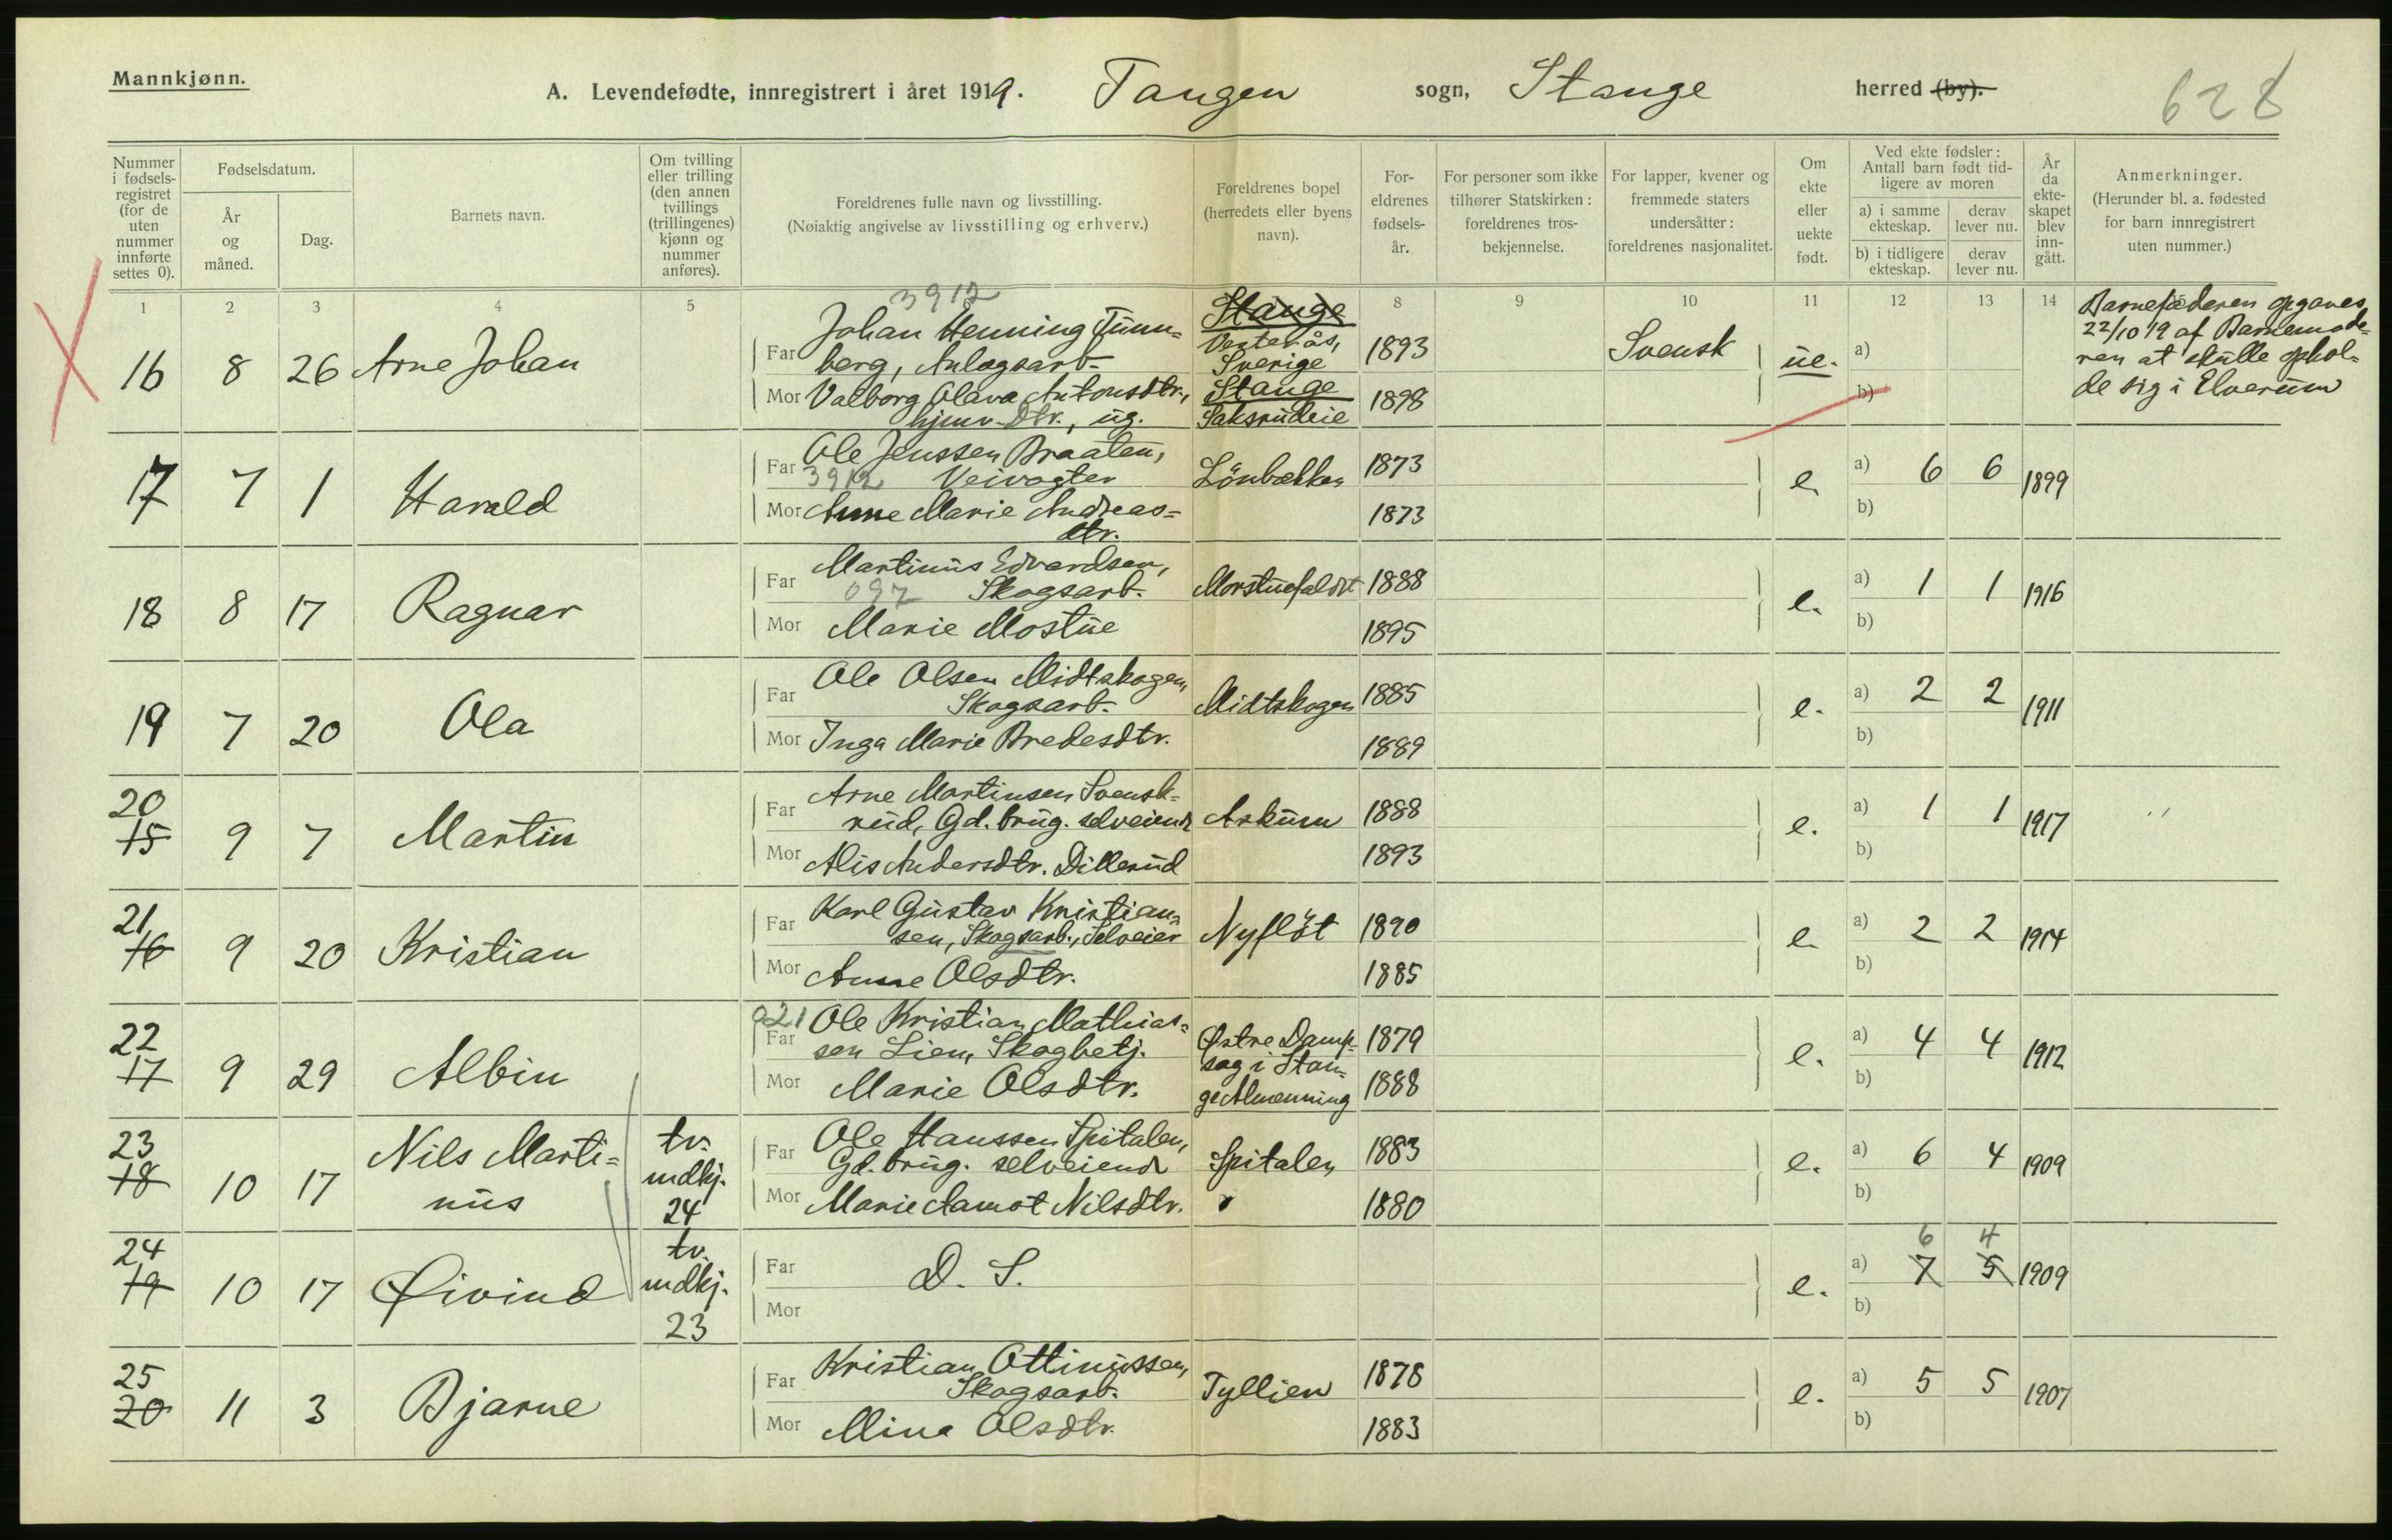 Mannkjønn.
A. Levendefødte, innregistrert i året 1919. Tangen sogn, Stange herred (by).
628
Nummer i fødselsregistret (for de uten nummer innførte settes 0).
Fødselsdatum.
År og måned.
Dag.
Barnets navn.
Om tvilling eller trilling (den annen tvillings (trillingenes) kjønn og nummer anføres).
Foreldrenes fulle navn og livsstilling.
(Nøiaktig angivelse av livsstilling og erhverv.)
Foreldrenes bopel (herredets eller byens navn).
Foreldrenes fødselsår.
For personer som ikke tilhører Statskirken: foreldrenes trosbekjennelse.
For lapper, kvener og fremmede staters undersåtter: foreldrenes nasjonalitet.
Om ekte eller uekte født.
Ved ekte fødsler: Antall barn født tidligere av moren
a) i samme ekteskap. derav lever nu.
b) i tidligere ekteskap. derav lever nu.
År da ekteskapet blev inngått.
Anmerkninger.
(Herunder bl. a. fødested for barn innregistrert uten nummer.)
1 2 3 4 5 8 9 10 11 12 13 14
3912
16 8 26 Arne Johan
Far Johan Henning Tunn=
berg, Anlægsarb.
Stange
Vesterås,
Sverige
1893 Svensk ue. a)
Mor Valborg Olava Antonsdtr.,
hjemv. Dtr., ug.
Stange
Saksrudeie
1898 b)
Barnefaderen opgaves
22/10 19 af Barnemode=
ren at skulle ophol=
de sig i Elverum
17 7 1 Harald
Far Ole Jenssen Braaten,
3912 Veivogter
Lönbækken 1873 e. a) 6 6 1899
Mor Anne Marie Andreas=
dtr.
1873 b)
18 8 17 Ragnar
Far Martinus Edvardsen,
097 Skogsarb.
Morstuefaldet 1888 e. a) 1 1 1916
Mor Marie Mostue 1895 b)
19 7 20 Ola
Far Ole Olsen Midtskogen,
Skogsarb.
Midtskogen 1885 e. a) 2 2 1911
Mor Inga Marie Bredesdtr. 1889 b)
20
15 9 7 Martin
Far Arne Martinsen Svensk=
rud, Gd.brug. selveiende
Askum 1888 e. a) 1 1 1917
Mor Alis Andersdtr. Dillerud 1893 b)
21
16 9 20 Kristian
Far Karl Gustav Kristian=
sen, Skogsarb., Selveier
Nyflöt 1890 e. a) 2 2 1914
Mor Anne Olsdtr. 1885 b)
22
17 9 29 Albin
021 Far Ole Kristian Mathias=
sen Lien, Skogbetj.
Østre Damp=
sag i Stan=
ge Almenning
1879 e. a) 4 4 1912
Mor Marie Olsdtr. 1888 b)
23
18 10 17 Nils Marti=
nus
tv.
mdkj.
24
Far Ole Hanssen Spitalen,
Gd.brug. selveiende
Spitalen 1883 e. a) 6 4 1909
Mor Marie Aamot Nilsdtr. 1880 b)
24
19 10 17 Øivind
tv.
mdkj.
23
Far D. S. e. a) 7 5 1909
6 4
Mor b)
25
20 11 3 Bjarne
Far Kristian Ottinussen,
Skogsarb.
Tyllien 1878 e. a) 5 5 1907
Mor Mina Olsdtr. 1883 b)